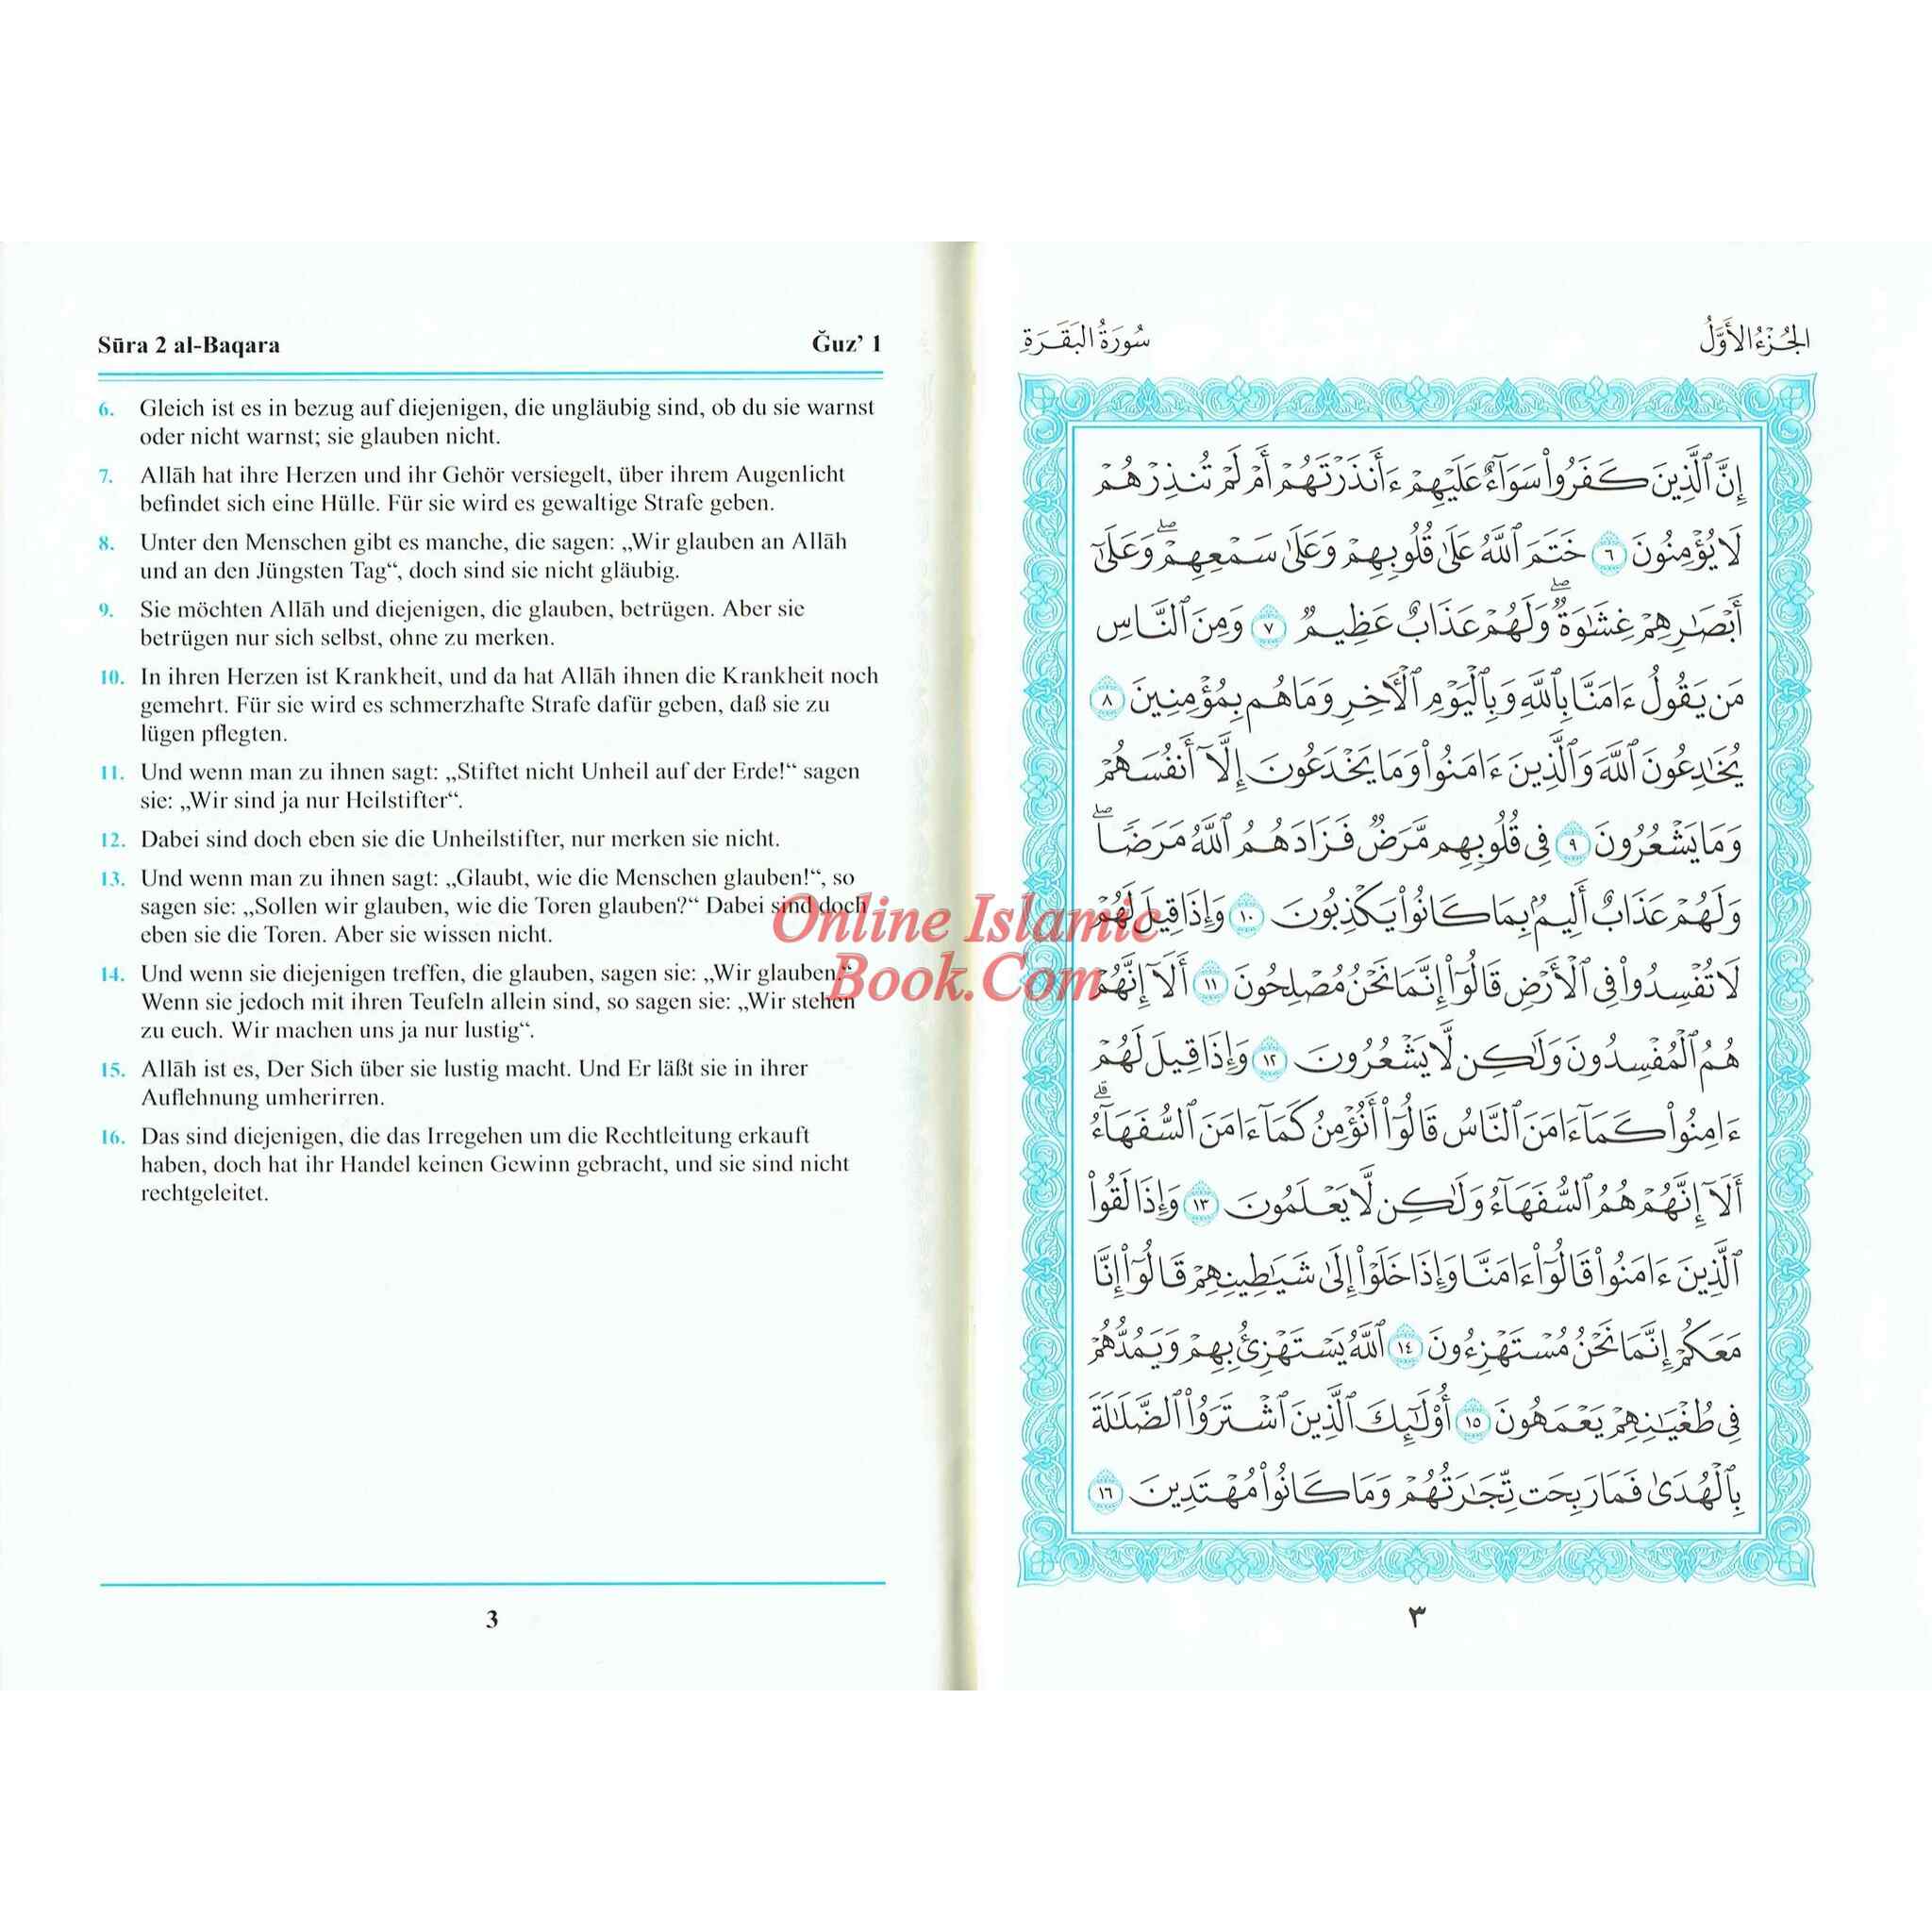 Sūra 2 al-Baqara
Ǧuz’ 1
6. Gleich ist es in bezug auf diejenigen, die ungläubig sind, ob du sie warnst
oder nicht warnst; sie glauben nicht.
7. Allāh hat ihre Herzen und ihr Gehör versiegelt, über ihrem Augenlicht
befindet sich eine Hülle. Für sie wird es gewaltige Strafe geben.
8. Unter den Menschen gibt es manche, die sagen: „Wir glauben an Allāh
und an den Jüngsten Tag“, doch sind sie nicht gläubig.
9. Sie möchten Allāh und diejenigen, die glauben, betrügen. Aber sie
betrügen nur sich selbst, ohne zu merken.
10. In ihren Herzen ist Krankheit, und da hat Allāh ihnen die Krankheit noch
gemehrt. Für sie wird es schmerzhafte Strafe dafür geben, daß sie zu
lügen pflegten.
11. Und wenn man zu ihnen sagt: „Stiftet nicht Unheil auf der Erde!“ sagen
sie: „Wir sind ja nur Heilstifter“.
12. Dabei sind doch eben sie die Unheilstifter, nur merken sie nicht.
13. Und wenn man zu ihnen sagt: „Glaubt, wie die Menschen glauben!“, so
sagen sie: „Sollen wir glauben, wie die Toren glauben?“ Dabei sind doch
eben sie die Toren. Aber sie wissen nicht.
14. Und wenn sie diejenigen treffen, die glauben, sagen sie: „Wir glauben.“
Wenn sie jedoch mit ihren Teufeln allein sind, so sagen sie: „Wir stehen
zu euch. Wir machen uns ja nur lustig“.
15. Allāh ist es, Der Sich über sie lustig macht. Und Er läßt sie in ihrer
Auflehnung umherirren.
16. Das sind diejenigen, die das Irregehen um die Rechtleitung erkauft
haben, doch hat ihr Handel keinen Gewinn gebracht, und sie sind nicht
rechtgeleitet.
3
Online Islamic
Book.Com
الجُزْءُ الأَوَّلُ
سُورَةُ البَقَرَةِ
إِنَّ ٱلَّذِينَ كَفَرُوا۟ سَوَآءٌ عَلَيْهِمْ ءَأَنذَرْتَهُمْ أَمْ لَمْ تُنذِرْهُمْ
لَا يُؤْمِنُونَ ٦ خَتَمَ ٱللَّهُ عَلَىٰ قُلُوبِهِمْ وَعَلَىٰ سَمْعِهِمْ ۖ وَعَلَىٰٓ
أَبْصَٰرِهِمْ غِشَٰوَةٌ ۖ وَلَهُمْ عَذَابٌ عَظِيمٌ ٧ وَمِنَ ٱلنَّاسِ
مَن يَقُولُ ءَامَنَّا بِٱللَّهِ وَبِٱلْيَوْمِ ٱلْءَاخِرِ وَمَا هُم بِمُؤْمِنِينَ ٨
يُخَٰدِعُونَ ٱللَّهَ وَٱلَّذِينَ ءَامَنُوا۟ وَمَا يَخْدَعُونَ إِلَّآ أَنفُسَهُمْ
وَمَا يَشْعُرُونَ ٩ فِى قُلُوبِهِم مَّرَضٌ فَزَادَهُمُ ٱللَّهُ مَرَضًا ۖ
وَلَهُمْ عَذَابٌ أَلِيمٌۢ بِمَا كَانُوا۟ يَكْذِبُونَ ١٠ وَإِذَا قِيلَ لَهُمْ
لَا تُفْسِدُوا۟ فِى ٱلْأَرْضِ قَالُوٓا۟ إِنَّمَا نَحْنُ مُصْلِحُونَ ١١ أَلَآ إِنَّهُمْ
هُمُ ٱلْمُفْسِدُونَ وَلَٰكِن لَّا يَشْعُرُونَ ١٢ وَإِذَا قِيلَ لَهُمْ
ءَامِنُوا۟ كَمَآ ءَامَنَ ٱلنَّاسُ قَالُوٓا۟ أَنُؤْمِنُ كَمَآ ءَامَنَ ٱلسُّفَهَآءُ ۗ
أَلَآ إِنَّهُمْ هُمُ ٱلسُّفَهَآءُ وَلَٰكِن لَّا يَعْلَمُونَ ١٣ وَإِذَا لَقُوا۟
ٱلَّذِينَ ءَامَنُوا۟ قَالُوٓا۟ ءَامَنَّا وَإِذَا خَلَوْا۟ إِلَىٰ شَيَٰطِينِهِمْ قَالُوٓا۟ إِنَّا
مَعَكُمْ إِنَّمَا نَحْنُ مُسْتَهْزِءُونَ ١٤ ٱللَّهُ يَسْتَهْزِئُ بِهِمْ وَيَمُدُّهُمْ
فِى طُغْيَٰنِهِمْ يَعْمَهُونَ ١٥ أُو۟لَٰٓئِكَ ٱلَّذِينَ ٱشْتَرَوُا۟ ٱلضَّلَٰلَةَ
بِٱلْهُدَىٰ فَمَا رَبِحَت تِّجَٰرَتُهُمْ وَمَا كَانُوا۟ مُهْتَدِينَ ١٦
٣